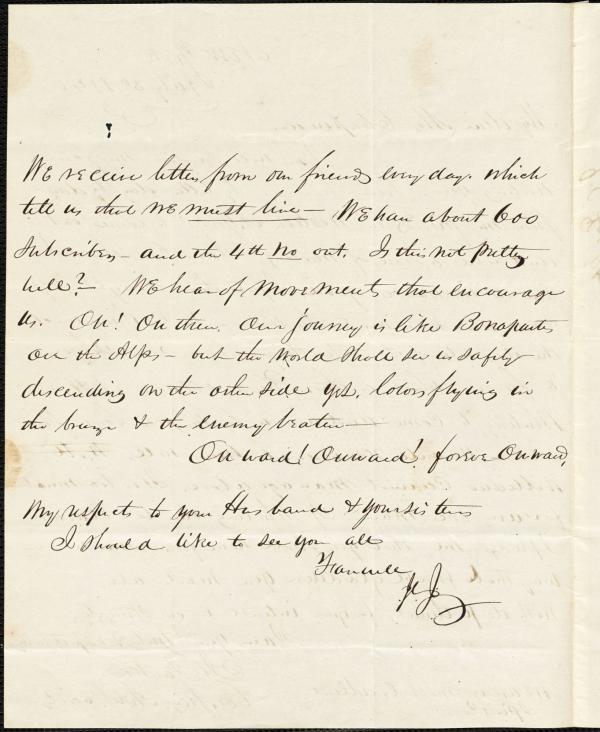 We receive letters from our friends every day. which
tell us that we must live – We have about 600
subscribers – and the 4th No out. Is this not pretty
well? – We hear of movements that encourage
us. On! On then. Our journey is like Bonapartes
on the Alps – but the world shall see us safely
descending on the other side yet, colors flying in
the breeze & the enemy beaten –
Onward! Onward! forever Onward,
My respects to your Husband & your sisters
I should like to see you all
Farewell
J.